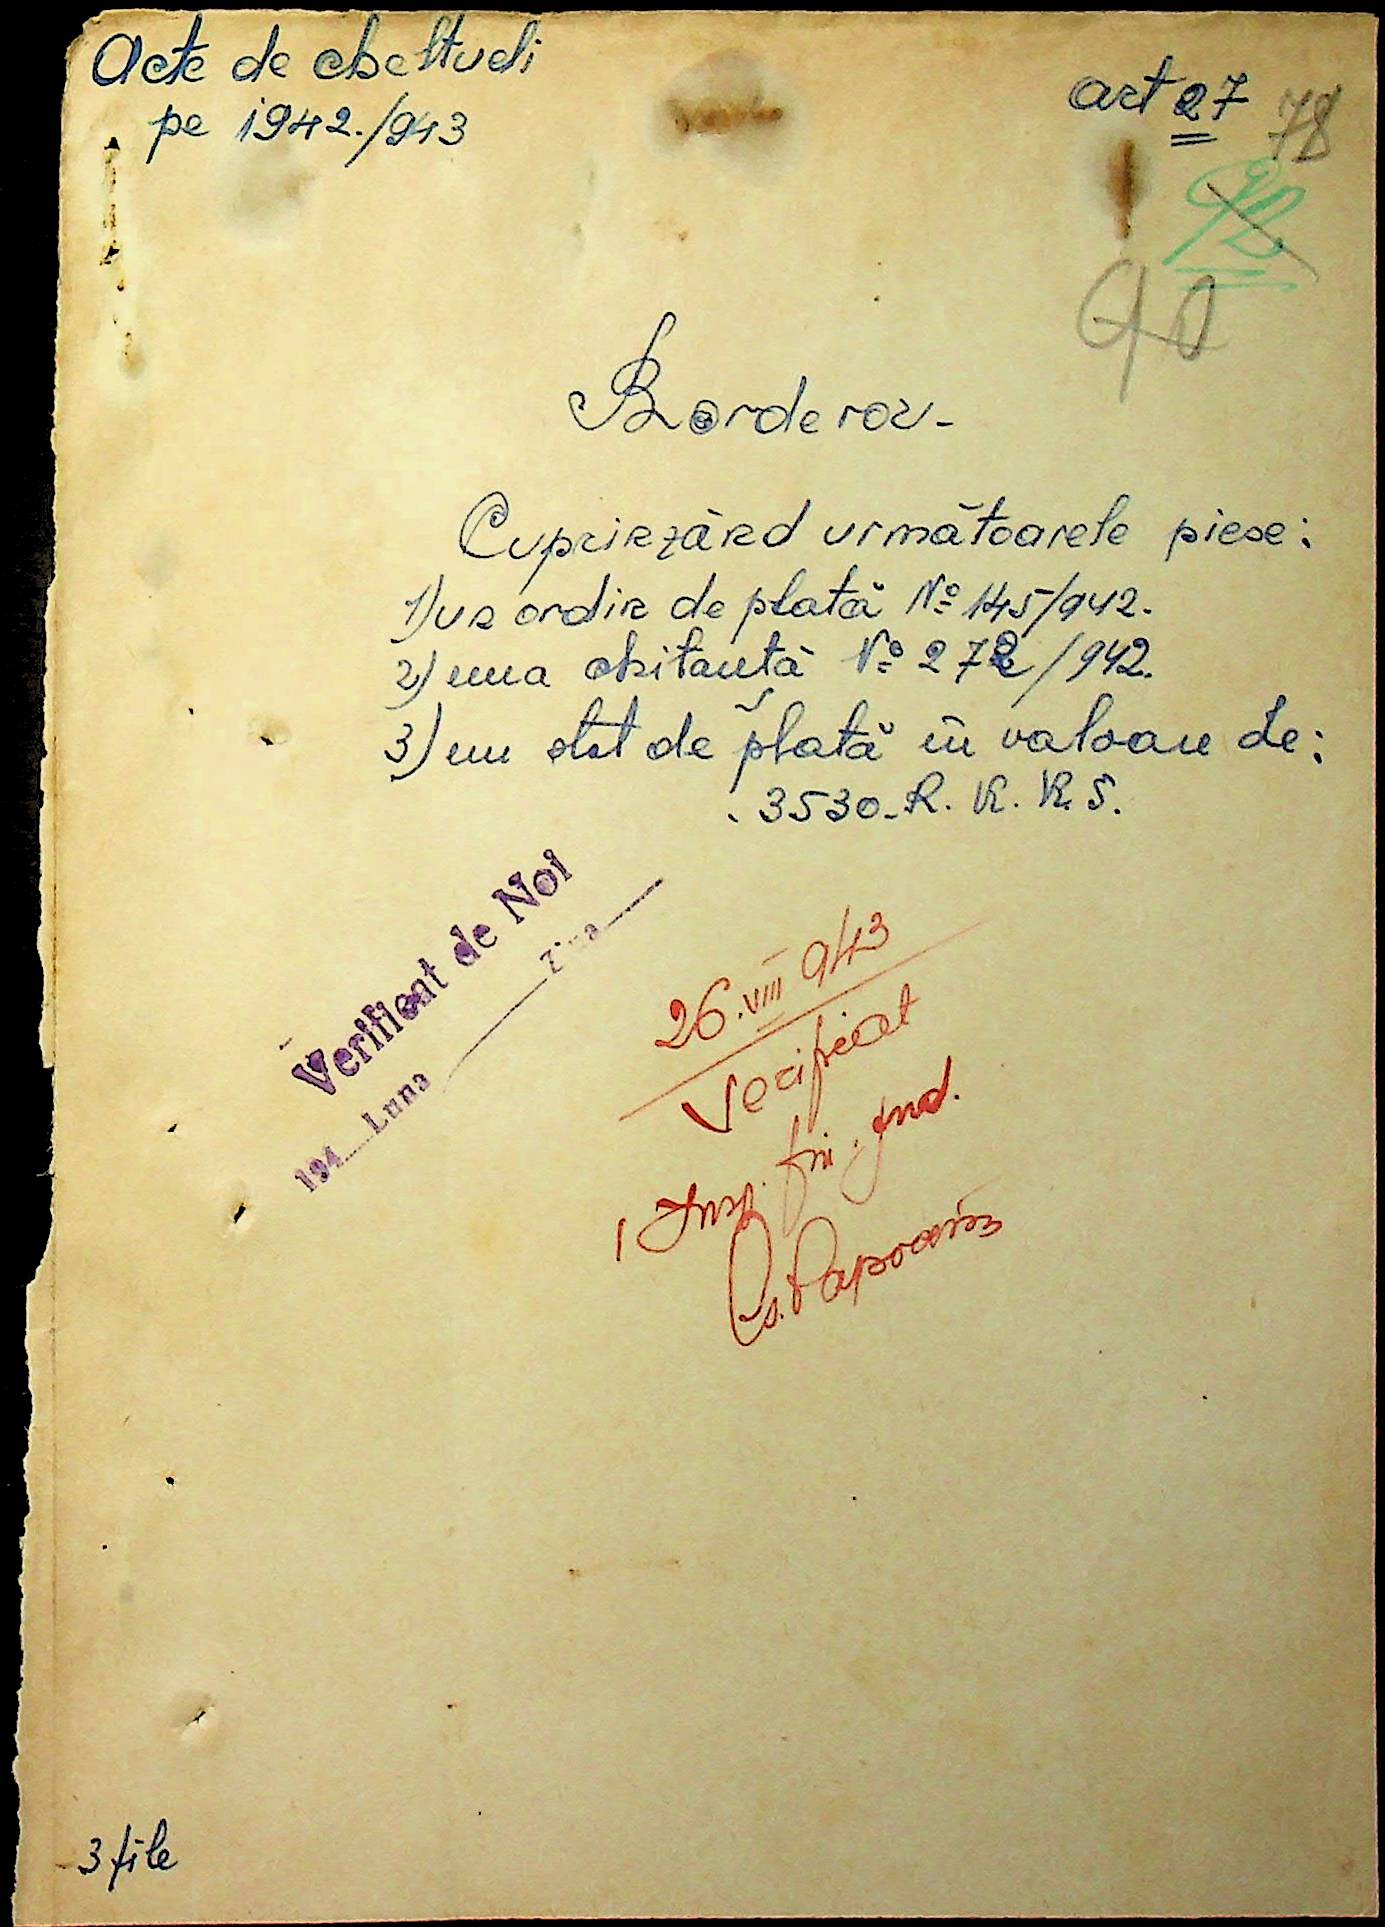 Acte de cheltueli
pe 1942./943
art 27
78
92
90
Borderou-
Cuprinzând următoarele piese:
1) un ordin de plată № 145/942.
2) una chitanță № 272/942.
3) un stat de plată în valoare de:
3530.- R. K. K. S.
Verificat de Noi
194 Luna Ziua
26.VIII 943
Verificat
Insp. fin. Jud.
3 file